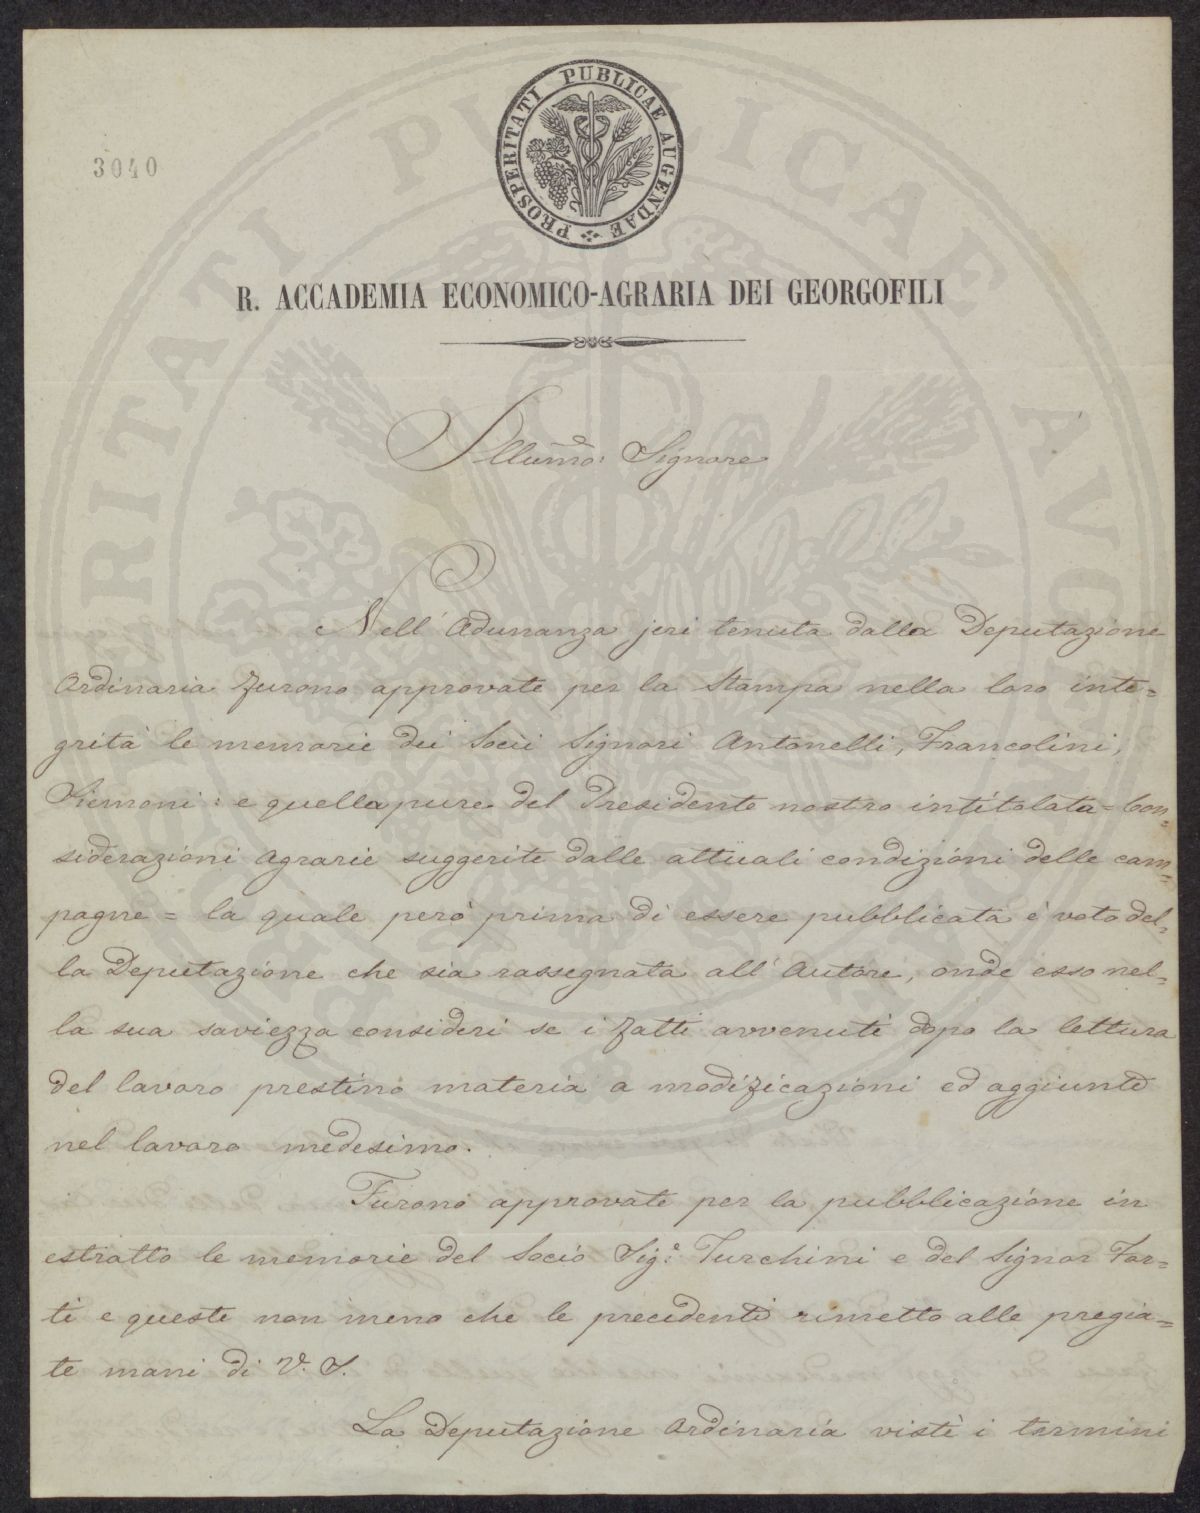 3040
PROSPERITATI PUBLICAE AUGENDAE
R. ACCADEMIA ECONOMICO-AGRARIA DEI GEORGOFILI
Illumo: Signore
Nell' Adunanza jeri tenuta dalla Deputazione
Ordinaria furono approvate per la Stampa nella loro inte=
grità le memorie dei Socii Signori Antonelli, Francolini,
Siemoni: e quella pure del Presidente nostro intitolata = Con=
siderazioni Agrarie suggerite dalle attuali condizioni delle cam=
pagne = la quale però prima di essere pubblicata è voto del=
la Deputazione che sia rassegnata all' Autore, onde esso nel=
la sua saviezza consideri se i fatti avvenuti dopo la lettura
del lavoro prestino materia a modificazioni ed aggiunte
nel lavoro medesimo.
Furono approvate per la pubblicazione in
estratto le memorie del Socio Sigr. Turchini e del Signor For=
ti e queste non meno che le precedenti rimetto alle pregia=
te mani di V. S.
La Deputazione Ordinaria visti i termini